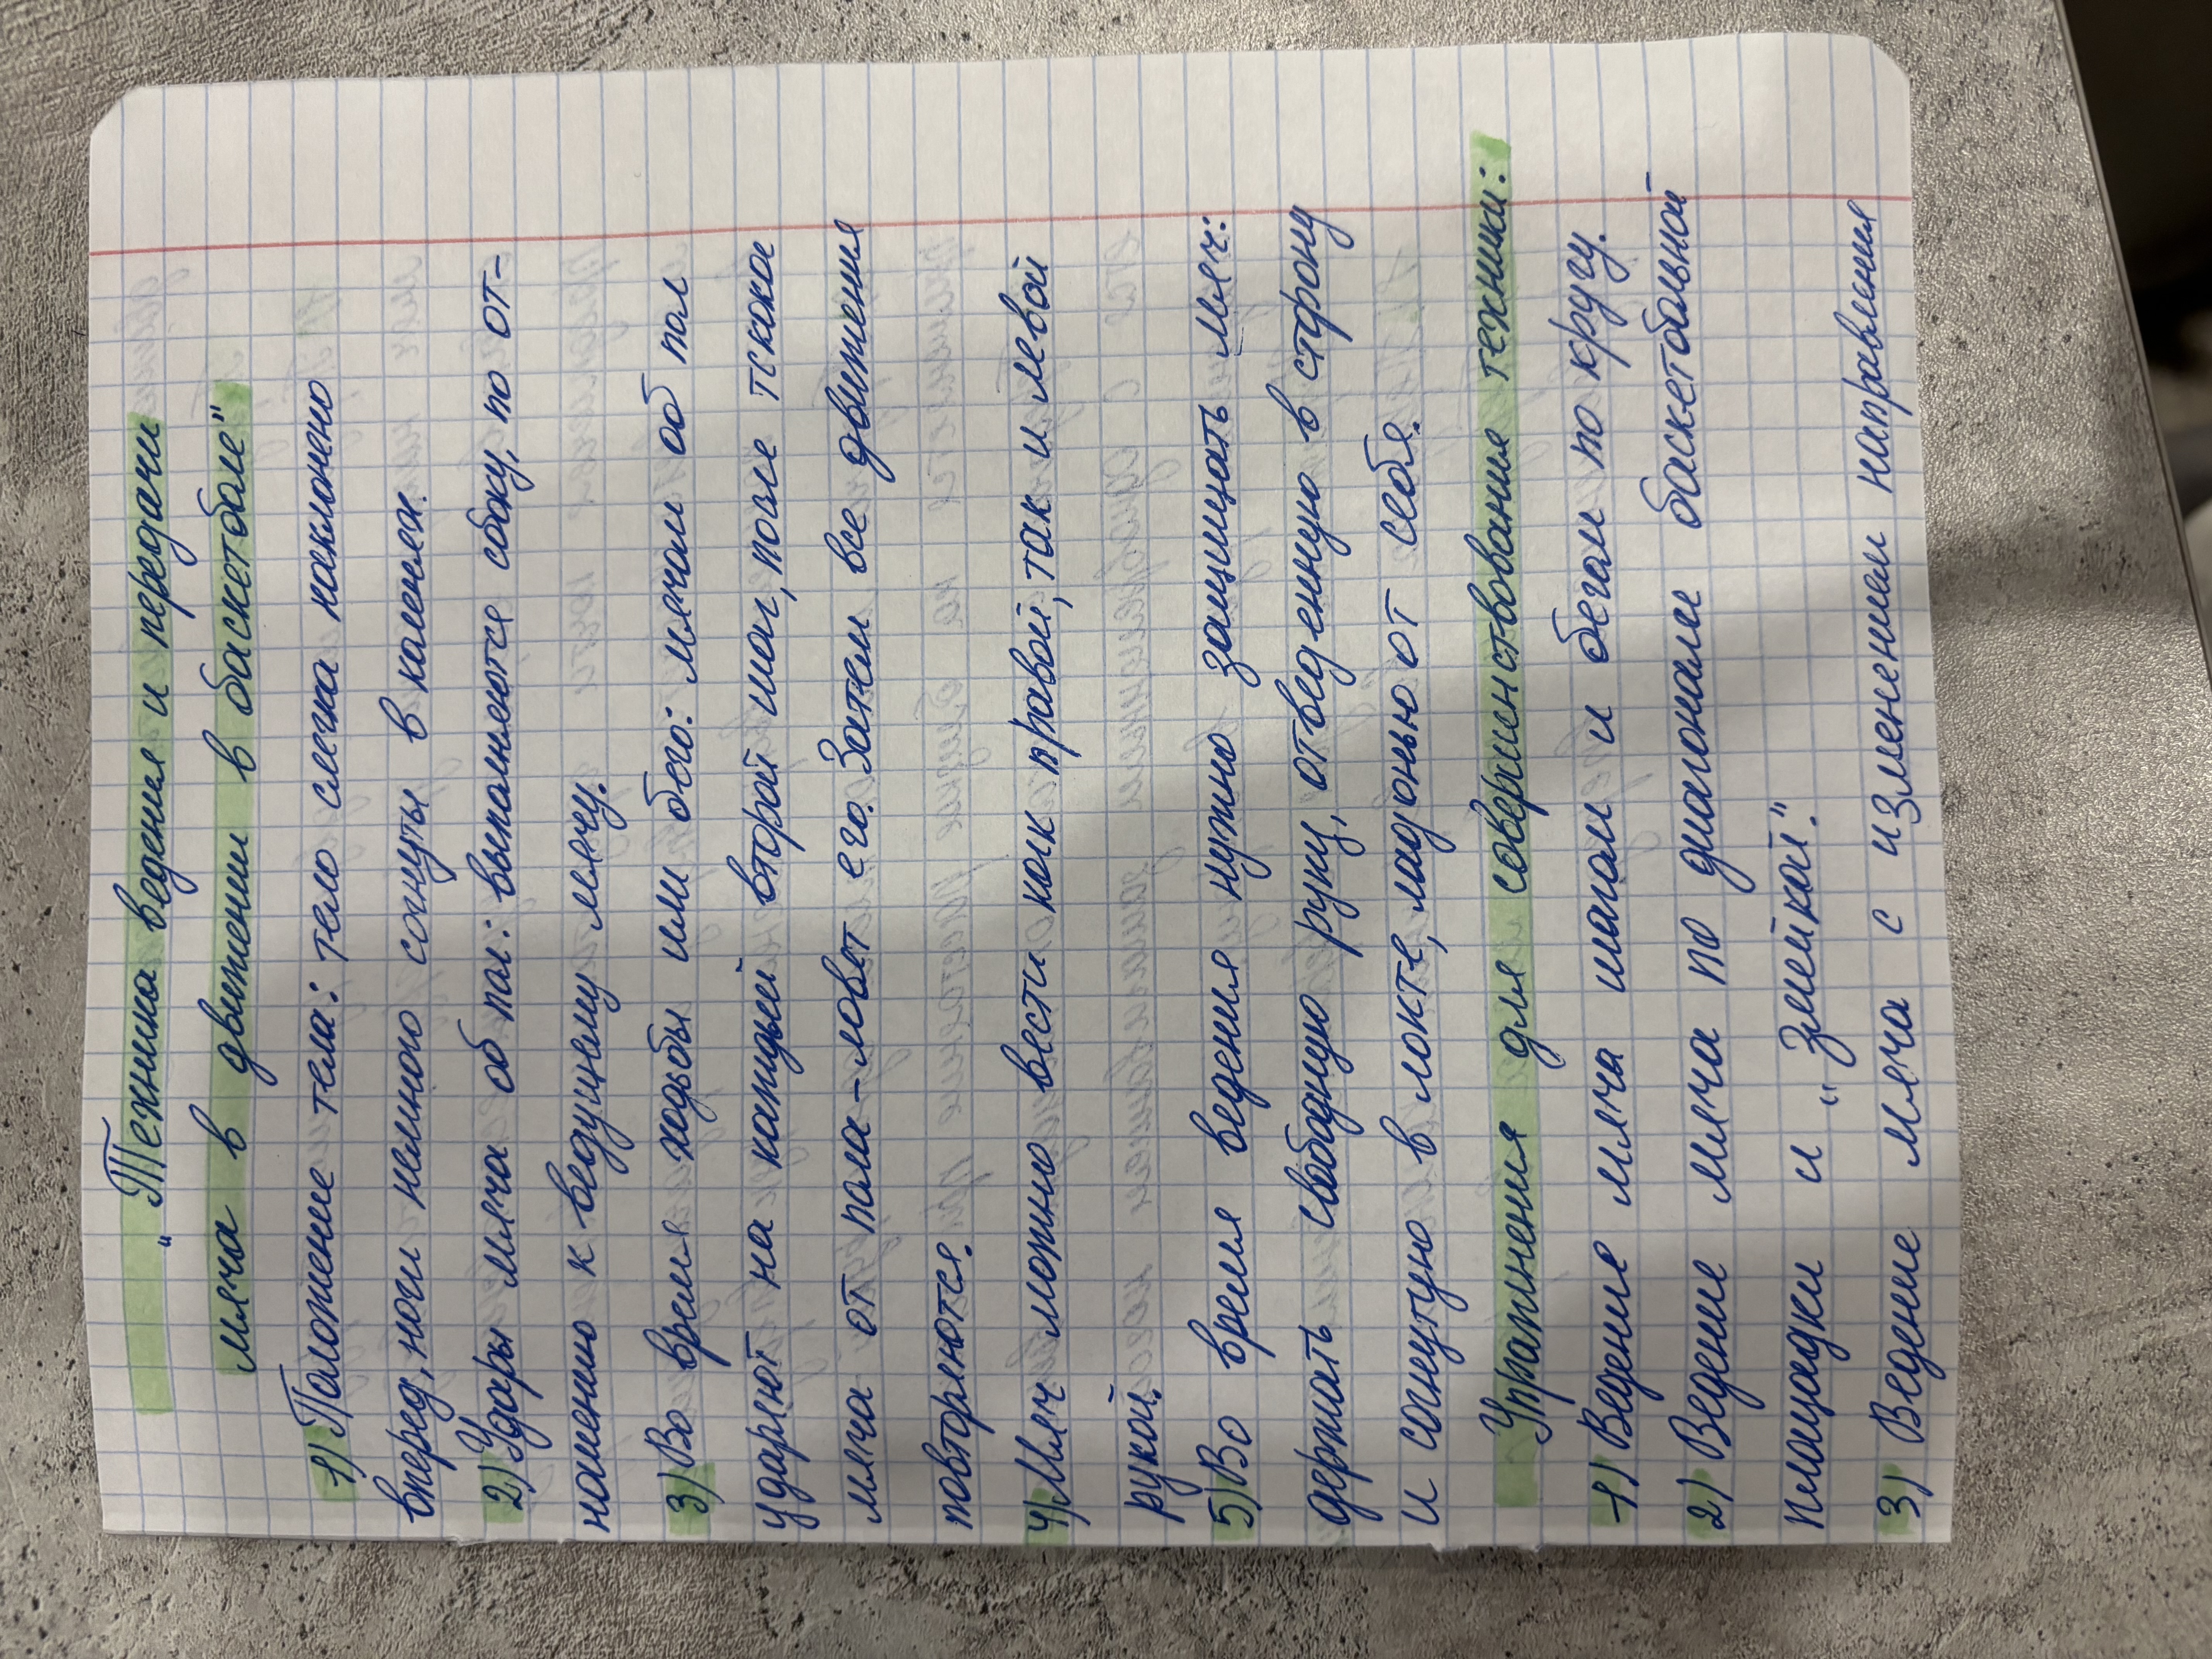 "Техника ведения и передачи
мяча в движении в баскетболе"
1) Положение тела: тело слегка наклонено
вперед, ноги немного согнуты в коленях.
2) Удары мяча об пол: выполняются сбоку, по от-
ношению к ведущему мячу.
3) Во время ходьбы или бега: мячом об пол
ударяют на каждый второй шаг, после тскока
мяча от пола-ловят его. Затем все движения
повторяются.
4) Мяч можно вести как правой, так и левой
рукой.
5) Во время ведения нужно защищать мяч:
держать свободную руку, отведенную в сторону
и согнутую в локте, ладонью от себя.
Упражнения для совершенствования техники:
1) Ведение мяча шагом и бегом по кругу.
2) Ведение мяча по диагонали баскетбольной
площадки и "Змейкой".
3) Ведение мяча с изменением направления